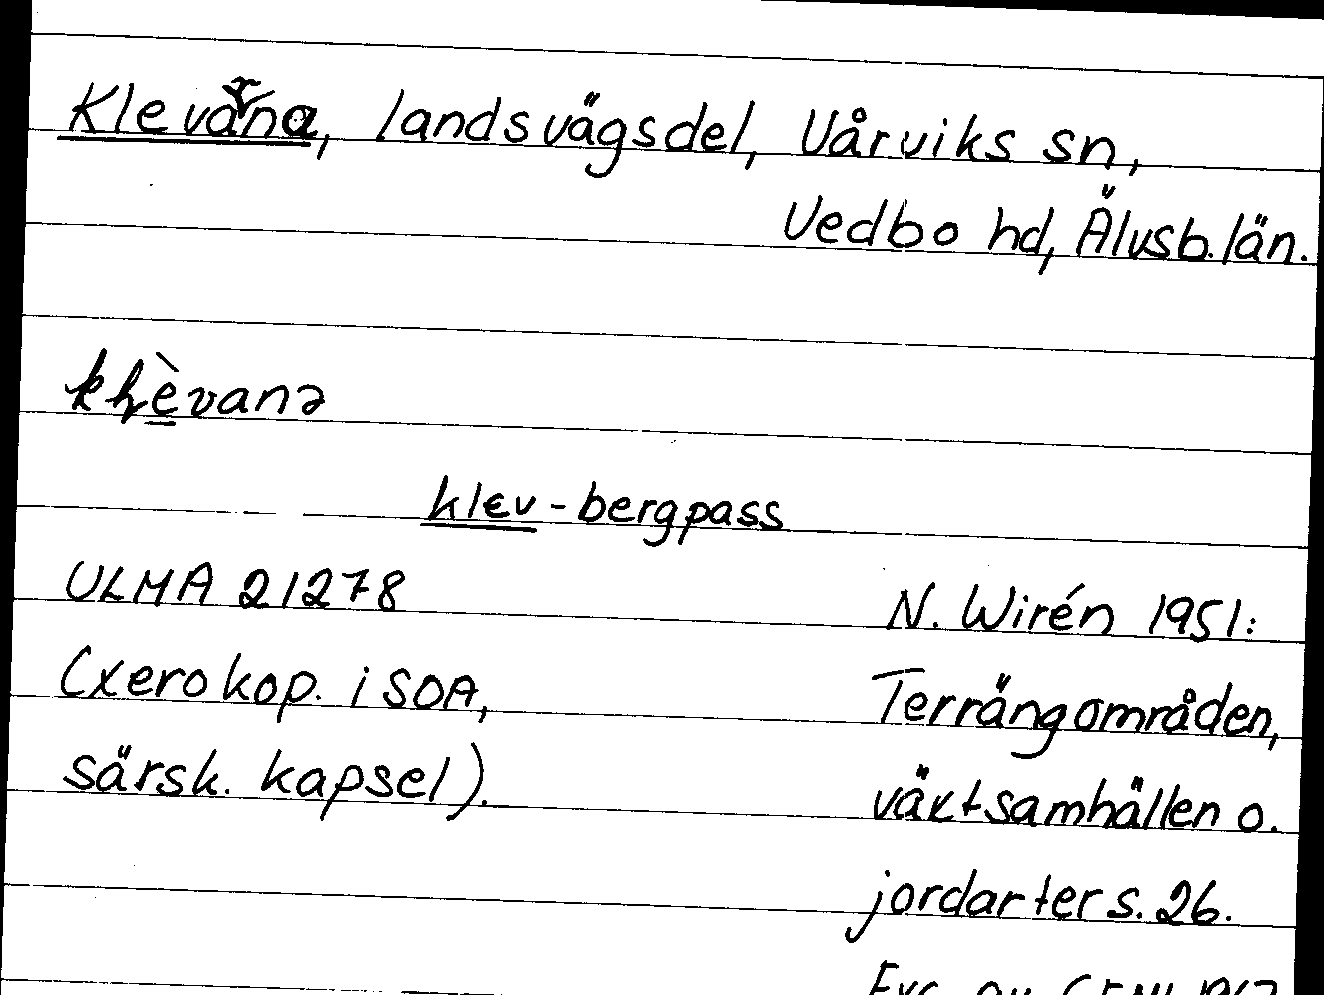 Klevarna, landsvägsdel, Vårviks sn,
Vedbo hd, Älvsb. län.
klev - bergpass
ULMA 21278
N. Wirén 1951:
(xerokop. i SOA,
Terrängområden,
särsk. kapsel).
växtsamhällen o.
jordarter s. 26.